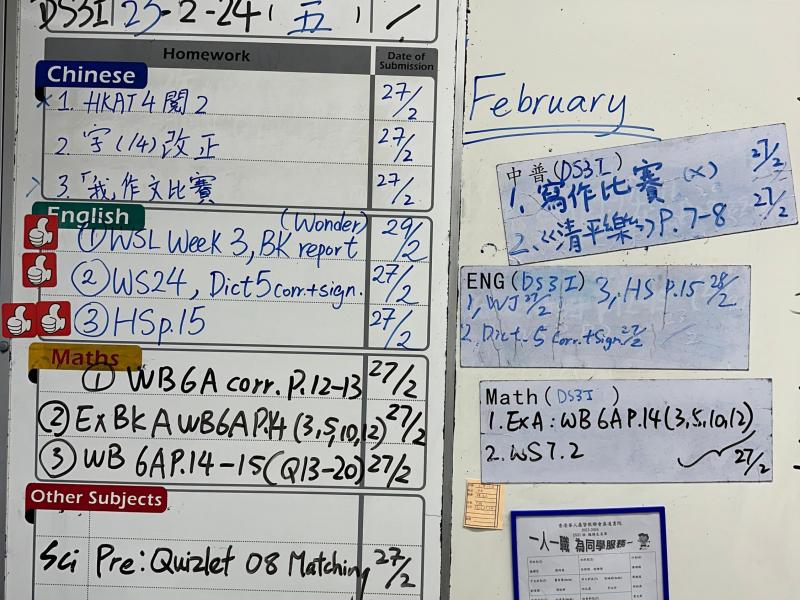 DS3I 23-2-24 (五)
Homework
Date of Submission
Chinese
1. HKAT4 閱2 27/2
2. 字(1/4)改正 27/2
3. 「我」作文比賽 27/2
English
(Wonder)
① WSL Week 3, BK report 29/2
② WS24, Dict 5 corr.+sign. 27/2
③ HS p.15 27/2
Maths
① WB6A corr. P.12-13 27/2
② Ex Bk A WB6A P.14 (3,5,10,12) 27/2
③ WB 6A P.14-15 (Q13-20) 27/2
Other Subjects
Sci Pre: Quizlet 08 Matching 27/2
February
中普(DS3I)
1. 寫作比賽 (x) 27/2
2. 《清平樂》P.7-8 27/2
ENG (DS3I) 3, HS P.15 28/2
1, WJ 27/2
2. Dict. 5 corr.+sign 27/2
Math (DS3I)
1. Ex A: WB 6A P.14 (3,5,10,12)
2. WS 7.2 27/2
一人一職 為同學服務